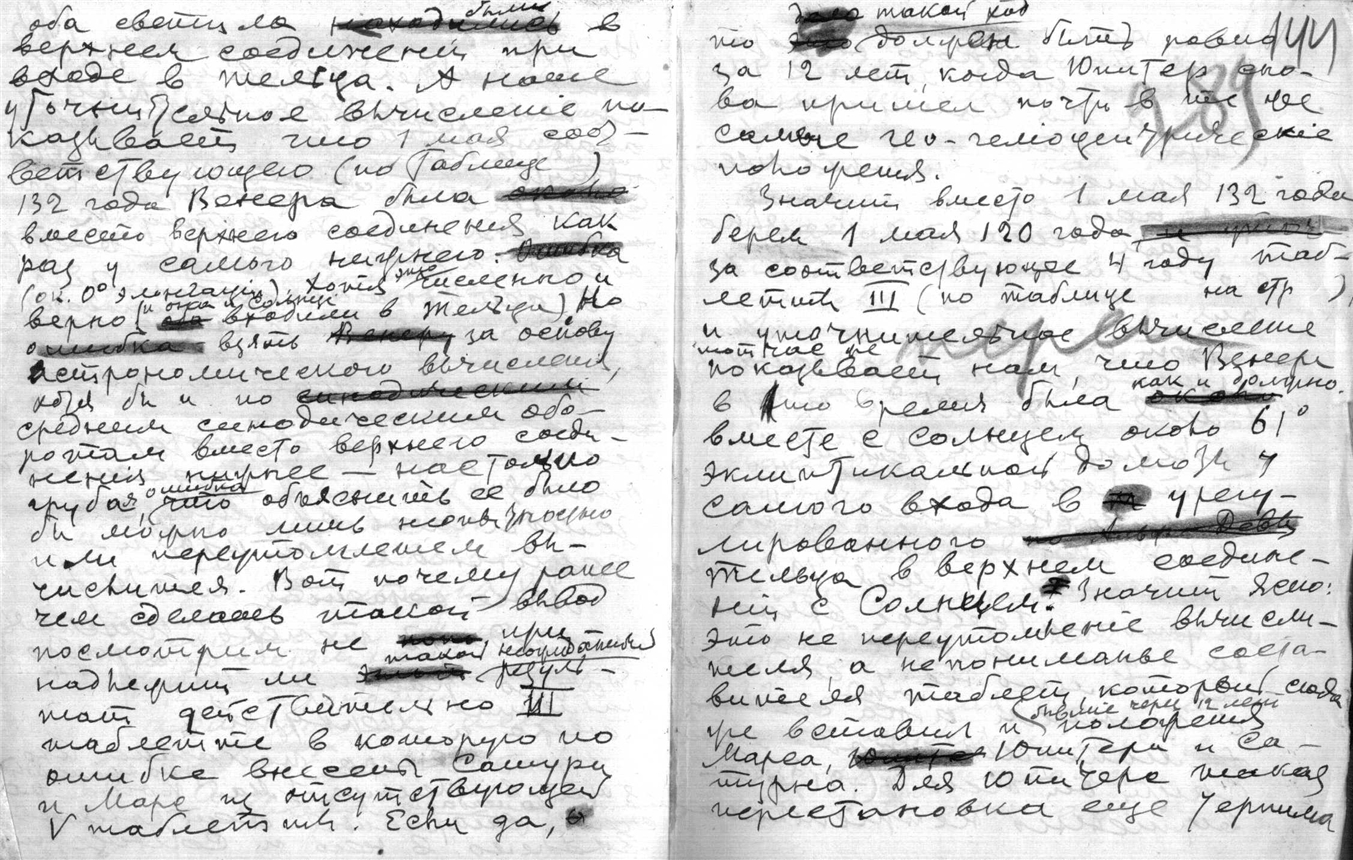 оба светила были в
верхнем соединении при
входе в тельца. А наше
уточнительное вычисленіе по-
казывает что 1 мая соот-
ветствующего (по Таблице )
132 года Венера была около
вместо верхнего соединения как
раз у самого нижнего. Ошибка
(ок. 0° элонгаціи), хотя численно и
верно (и она и солнце входили в Тельца). Но
ошибка взять Венеру за основу
астрономического вычисления,
хотя бы и по синодическим
средним синодическим обо-
ротам вместо верхнего соеди-
нения нижнее — настолько
грубая ошибка, что объяснить ее было
бы можно лишь
или переутомлением вы-
числителя. Вот почему ранее
чем сделать такой вывод
посмотрим не
надлежит ли такой неожиданный резуль-
тат действительно III
таблетте в которую по
ошибке внесены Сатурн
и Марс из отсутствующей
V таблетти. Если да,
дало такой ход
то это должен быть равно 144
за 12 лет, когда Юпитер сно-
ва пришел почти в те же
самые гео-гелиоцентрическіе
положения.
Значит вместо 1 мая 132 года
берем 1 мая 120 года
за соответствующее 4 году таб-
летти III (по таблице на стр ),
и уточнительное вычисление
тотчас же
показывает нам, что Венера
в это время была как и должно
вместе с солнцем около 61°
эклиптикальной долготы у
самого входа в урегу-
лированного
тельца в верхнем соедине-
нии с Солнцем. Значит ясно:
это не переутомление вычисли-
теля, а непониманье соста-
вителя таблетт, который сюда
же вставил и положения
Марса, Юпитера и Са-
турна. Для Юпитера такая
перестановка еще терпима